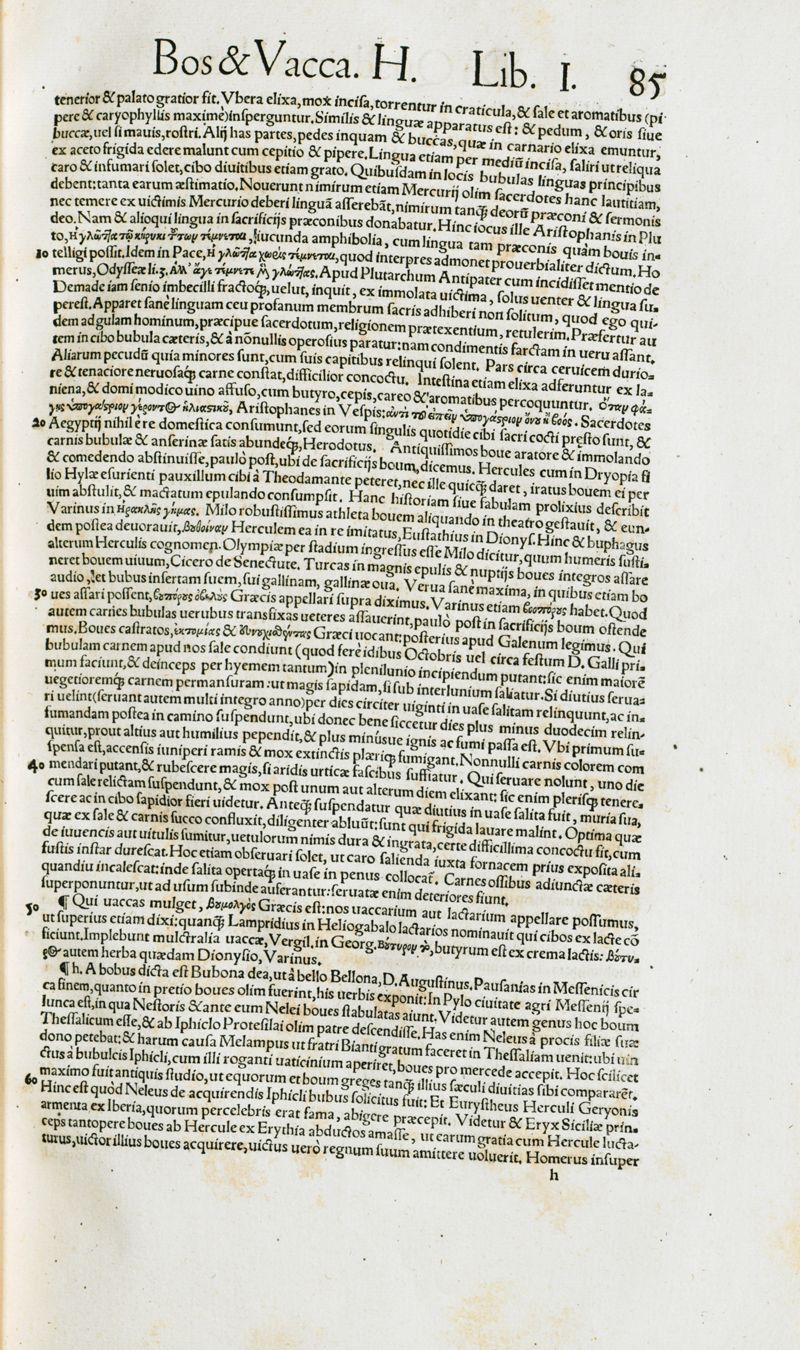 Bos & Vacca. H. Lib. I. 85
tenerior & palato gratior fit. Vbera elixa, mox incisa, torrentur in craticula, & sale et aromatibus (pi
pere & caryophyllis maxime) insperguntur. Similis & linguæ apparatus est: & pedum, & oris siue
buccæ, uel si mauis, rostri. Alij has partes, pedes inquam & buccas, quæ in carnario elixa emuntur,
ex aceto frigida edere malunt cum cepitio & pipere. Lingua etiam per mediũ incisa, saliri ut reliqua
caro & infumari solet, cibo diuitibus etiam grato. Quibusdam in locis bubulas linguas principibus
debent: tanta earum æstimatio. Nouerunt nimirum etiam Mercurij olim sacerdotes hanc lautitiam,
nec temere ex uictimis Mercurio deberi linguã asserebãt, nimirum tanꝗ̃ deorũ præconi & sermonis
deo. Nam & alioqui lingua in sacrificijs præconibus donabatur. Hinc iocus ille Aristophanis in Plu
to, Ἡ γλῶττα τῷ κήρυκι τούτων τέμνεται, iucunda amphibolia, cum lingua tam præconis quàm bouis in=
10 telligi possit. Idem in Pace, Ἡ γλῶττα χωρὶς τέμνεται, quod interpres admonet prouerbialiter dictum. Ho
merus, Odysseæ li. 3. Ἀλλ' ἄγε τάμνετε μὲν γλώσσας. Apud Plutarchum Antipater cum incidisset mentio de
Demade iam senio imbecilli fractoꝗ, uelut, inquit, ex immolata uictima, solus uenter & lingua su=
perest. Apparet sanè linguam ceu profanum membrum sacris adhiberi non solitum, quod ego qui=
dem ad gulam hominum, præcipue sacerdotum, religionem prætexentium, retulerim. Præfertur au
tem in cibo bubula cæteris, & à nõnullis operosius paratur: nam condimentis farctam in ueru assant.
Aliarum pecudũ quia minores sunt, cum suis capitibus relinqui solent. Pars circa ceruicem durio=
re & tenaciore neruosaꝗ carne constat, difficilior concoctu. Intestina etiam elixa adferuntur ex la=
niena, & domi modico uino affuso, cum butyro, cepis, careo & aromatibus percoquuntur. Ὅταν φά=
γῃς ὑπογάστριον γέροντος ἡλιαστικοῦ, Aristophanes in Vespis: ὑπογάστριον. Sacerdotes
20 Aegyptij nihil e re domestica consumunt, sed eorum singulis quotidie cibi sacri cocti præsto sunt, &
carnis bubulæ & anserinæ satis abundeꝗ, Herodotus. Antiquissimos boue aratore & immolando
& comedendo abstinuisse, paulò post, ubi de sacrificijs boum, dicemus. Hercules cum in Dryopia fi
lio Hylæ esurienti pauxillum cibi à Theodamante peteret, nec ille quicꝗ̃ daret, iratus bouem ei per
uim abstulit, & mactatum epulando consumpsit. Hanc historiam siue fabulam prolixius describit
Varinus in Ἡρακλῆς γήμας. Milo robustissimus athleta bouem aliquando in theatro gestauit, & eun=
dem postea deuorauit, βουθοίναν Herculem ea in re imitatus, Eustathius in Dionys. Hinc & buphagus
alterum Herculis cognomen. Olympiæ per stadium ingressus esse Milo dicitur, quum humeris susti=
neret bouem uiuum, Cicero de Senectute. Turcas in magnis epulis & nuptijs boues integros assare
audio, et bubus insertam suem, sui gallinam, gallinæ oua. Verua sanè maxima, in quibus etiam bo
30 ues assari possent, βουπόρους ὀβελοὺς Græcis appellari supra diximus. Varinus etiam βουπόρους habet. Quod
autem carnes bubulas uerubus transfixas ueteres assauerint, paulò post in sacrificijs boum ostende
mus. Boues castratos, ἐκτομίας & εὐνουχισθέντας Græci uocant: posterius apud Galenum legimus. Qui
bubulam carnem apud nos sale condiunt (quod ferè idibus Octobris uel circa festum D. Galli pri=
mum faciunt, & deinceps per hyemem tantum) in plenilunio incipiendum putant: sic enim maiorẽ
uegetioremꝗ carnem permansuram: ut magis sapidam, si sub interlunium saliatur. Si diutius serua=
ri uelint (seruant autem multi integro anno) per dies circiter uiginti in uase salitam relinquunt, ac in=
fumandam postea in camino suspendunt, ubi donec bene siccetur dies plus minus duodecim relin=
quitur, prout altius aut humilius pependit, & plus minusue ignis ac fumi passa est. Vbi primum su=
spensa est, accensis iuniperi ramis & mox extinctis pleriꝗ fumigant. Nonnulli carnis colorem com
40 mendari putant, & rubescere magis, si aridis urticæ fascibus suffiatur. Qui seruare nolunt, uno die
cum sale relictam suspendunt, & mox post unum aut alterum diem elixant: sic enim plerisꝗ tenere=
scere ac in cibo sapidior fieri uidetur. Anteꝗ̃ suspendatur quæ diutius in uase salita fuit, muria sua,
quæ ex sale & carnis succo confluxit, diligenter abluũt: sunt qui frigida lauare malint. Optima quæ
de iuuencis aut uitulis sumitur, uetulorum nimis dura & ingrata, certe difficillima concoctu fit, cum
fustis instar durescat. Hoc etiam obseruari solet, ut caro salienda iuxta fornacem prius exposita ali=
quandiu incalescat: inde salita opertaꝗ in uase in penus collocat̃. Carnes ossibus adiunctæ cæteris
superponuntur, ut ad usum subinde auferantur: seruatæ enim deteriores fiunt.
50 ¶ Qui uaccas mulget, βουμολγὸς Græcis est: nos uaccarium aut lactarium appellare possumus,
ut superius etiam dixi: quanꝗ̃ Lampridius in Heliogabalo lactarios nominauit qui cibos ex lacte cõ
ficiunt. Implebunt mulctralia uaccæ, Vergil. in Georg. Βούτυρον τὸ, butyrum est ex crema lactis: βούτυ=
ρος autem herba quædam Dionysio, Varinus.
¶ h. A bobus dicta est Bubona dea, ut à bello Bellona, D. Augustinus. Pausanias in Messenicis cir
ca finem, quanto in pretio boues olim fuerint, his uerbis exponit: In Pylo ciuitate agri Messenij spe=
lunca est, in qua Nestoris & ante eum Nelei boues stabulatas aiunt. Videtur autem genus hoc boum
Thessalicum esse, & ab Iphiclo Protesilai olim patre descendisse. Has enim Neleus à procis filiæ suæ
dono petebat: & harum causa Melampus ut fratri Bianti gratum faceret in Thessaliam uenit: ubi uin
ctus à bubulcis Iphicli, cum illi roganti uaticinium aperiret, boues pro mercede accepit. Hoc scilicet
60 maximo fuit antiquis studio, ut equorum et boum greges tanꝗ̃ illius sæculi diuitias sibi compararẽt.
Hinc est quòd Neleus de acquirendis Iphicli bubus solicitus fuit: Et Eurystheus Herculi Geryonis
armenta ex Iberia, quorum percelebris erat fama, abigere præcepit. Videtur & Eryx Siciliæ prin=
ceps tantopere boues ab Hercule ex Erythia abductos amasse, ut earum gratia cum Hercule lucta=
turus, uictor illius boues acquirere, uictus uerò regnum suum amittere uoluerit. Homerus insuper
h